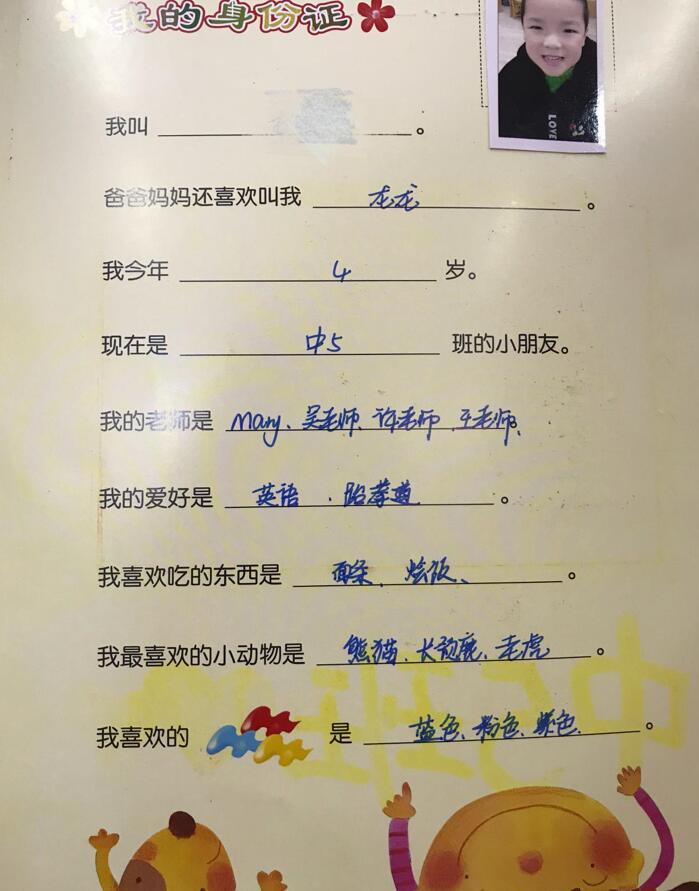 我的身份证
LOVE
我叫 。
爸爸妈妈还喜欢叫我 龙龙 。
我今年 4 岁。
现在是 中5 班的小朋友。
我的老师是 Mary、吴老师、许老师、王老师。
我的爱好是 英语、跆拳道 。
我喜欢吃的东西是 面条、烩饭、 。
我最喜欢的小动物是 熊猫、长颈鹿、老虎 。
我喜欢的 是 蓝色、粉色、紫色 。